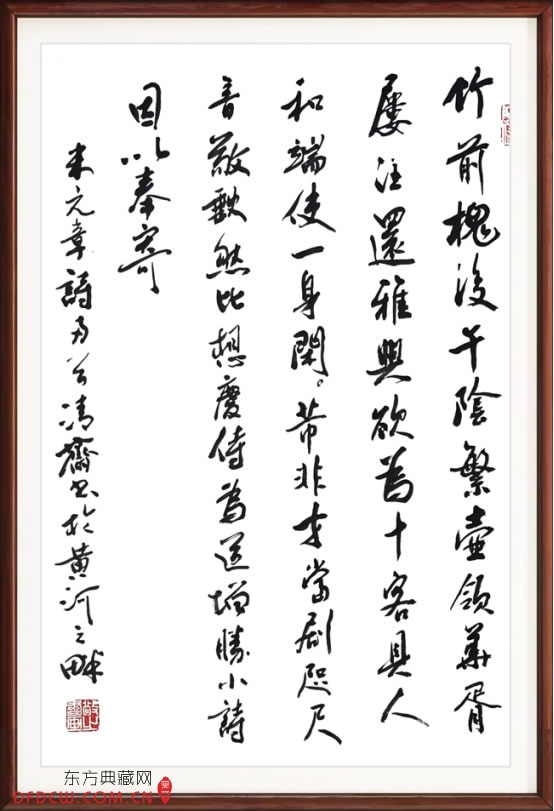 竹前槐後午陰繁壺領華胥
屢往還雅興欲爲十客具人
和端使一身閑。芾非才當劇咫尺
音敬缺然比想慶侍爲道增勝小詩
因以奉寄
米元章詩 清齋書於黄河之畔
东方典藏网
DFDCW.COM.CN